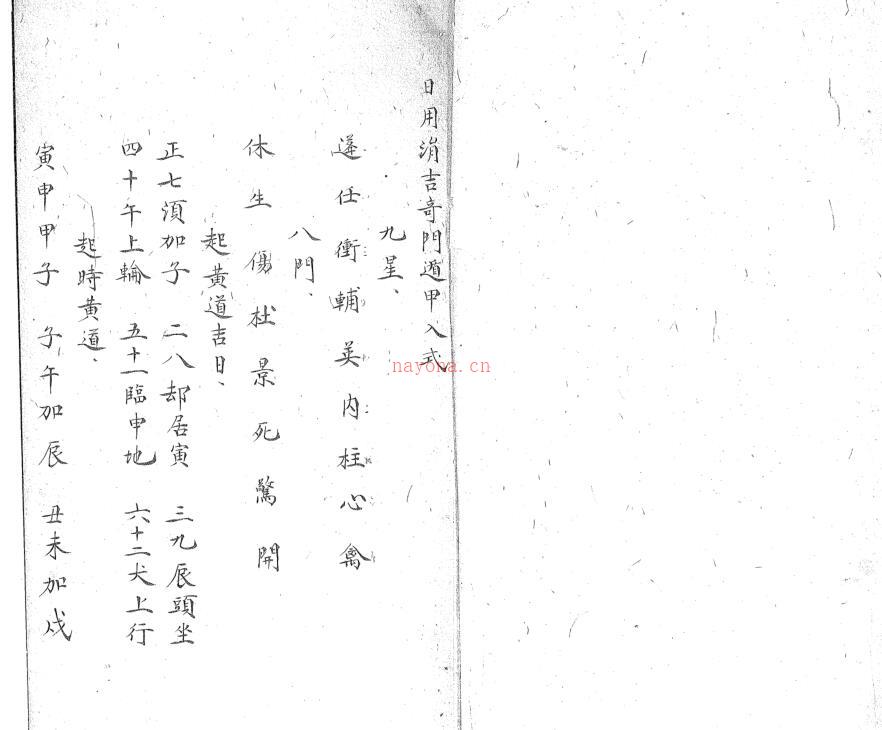 日用涓吉奇門遁甲入式
九星、
蓬任衝輔英內柱心禽
八門、
休生傷杜景死驚開
起黃道吉日、
正七須加子 二八却居寅 三九辰頭坐
四十午上輪 五十一臨申地 六十二犬上行
起時黃道、
寅申甲子 子午加辰 丑未加戍
nayona.cn